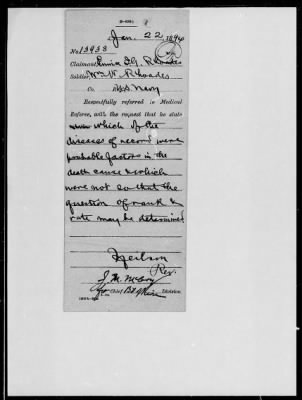 Jan. 22, 1894
No. 13933
Claimant, Emma D. G. Rhoades
Soldier, Wm. W. Rhoades
Co. U.S. Navy
Respectfully referred to Medical
Referee, with the request that he state
which of the
diseases of record were
probable factors in the
death cause & which
were not so that the
question of rank &
rate may be determined
Neilson
Rev.
J. M.
Chief Division.